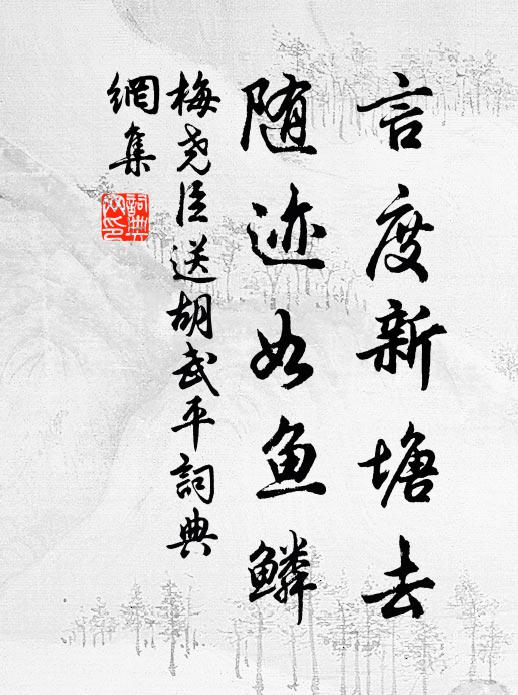 言度新塘去
随迹如鱼鳞
梅尧臣送胡武平詞典
網集
詞典
网印